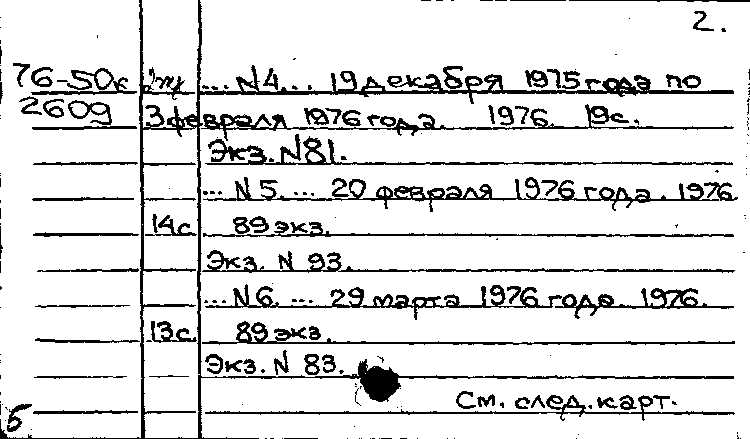 2.
76-50к ... N4... 19 декабря 1975 года по
2609 3 февраля 1976 года. 1976. 19с.
Экз. N81.
... N5. ... 20 февраля 1976 года. 1976.
14с. 89 экз.
Экз. N 93.
... N6. ... 29 марта 1976 года. 1976.
13с. 89 экз.
Экз. N 83.
См. след. карт.
б